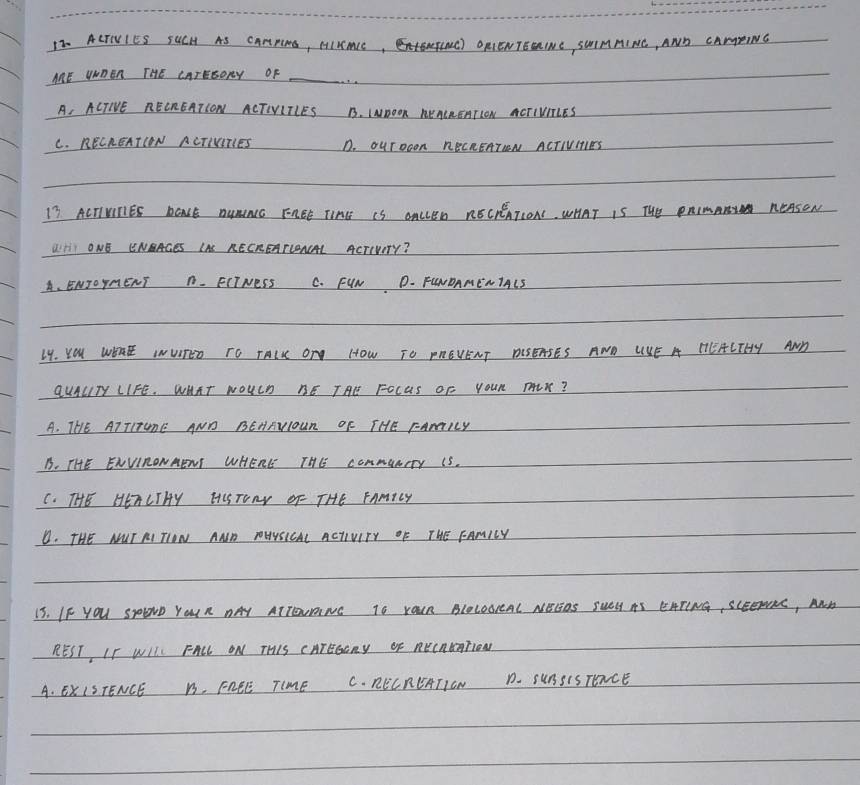 12. ACTIVIES SUCH AS CAMPING, HIKING, ORIENTEERING, SWIMMING, AND CAMPING
ARE UNDER THE CATEGORY OF ________...
A. ACTIVE RECREATION ACTIVITIES B. INDOOR RECREATION ACTIVITIES
C. RECREATION ACTIVITIES D. OUTDOOR RECREATION ACTIVITIES
13 ACTIVITIES DONE DURING FREE TIME IS CALLED RECREATION. WHAT IS THE PRIMARY REASON
WHY ONE ENGAGES IN RECREATIONAL ACTIVITY?
A. ENJOYMENT B- FITNESS C. FUN D- FUNDAMENTALS
14. YOU WERE INVITED TO TALK ON HOW TO PREVENT DISEASES AND LIVE A HEALTHY AND
QUALITY LIFE. WHAT WOULD BE THE FOCUS OF YOUR TALK?
A. THE ATTITUDE AND BEHAVIOUR OF THE FAMILY
B. THE ENVIRONMENT WHERE THE COMMUNITY IS.
C. THE HEALTHY HISTORY OF THE FAMILY
D. THE NUTRITION AND PHYSICAL ACTIVITY OF THE FAMILY
15. IF YOU SPEND YOUR DAY ATTENDING TO YOUR BIOLOGICAL NEEDS SUCH AS EATING, SLEEPING, AND
REST, IT WILL FALL ON THIS CATEGORY OF RECREATION
A. EXISTENCE B. FREE TIME C. RECREATION D. SUBSISTENCE